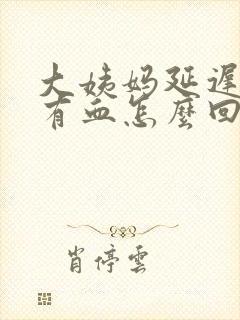 大姨妈延遲
有血怎麼回
肖停雲